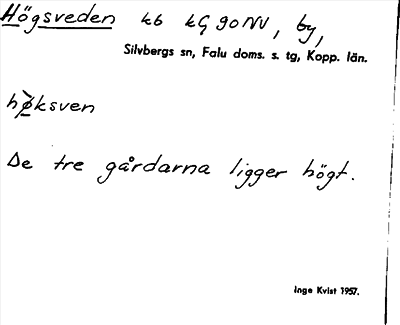 Högsveden kb kG 90 NV, by,
Silvbergs sn, Falu doms. s. tg, Kopp. län.
hø̀ksven
De tre gårdarna ligger högt.
Inge Kvist 1957.